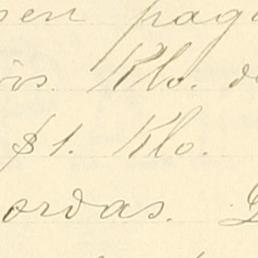 sen pag
vs. Klo. d
$1. Klo.
ordas. L